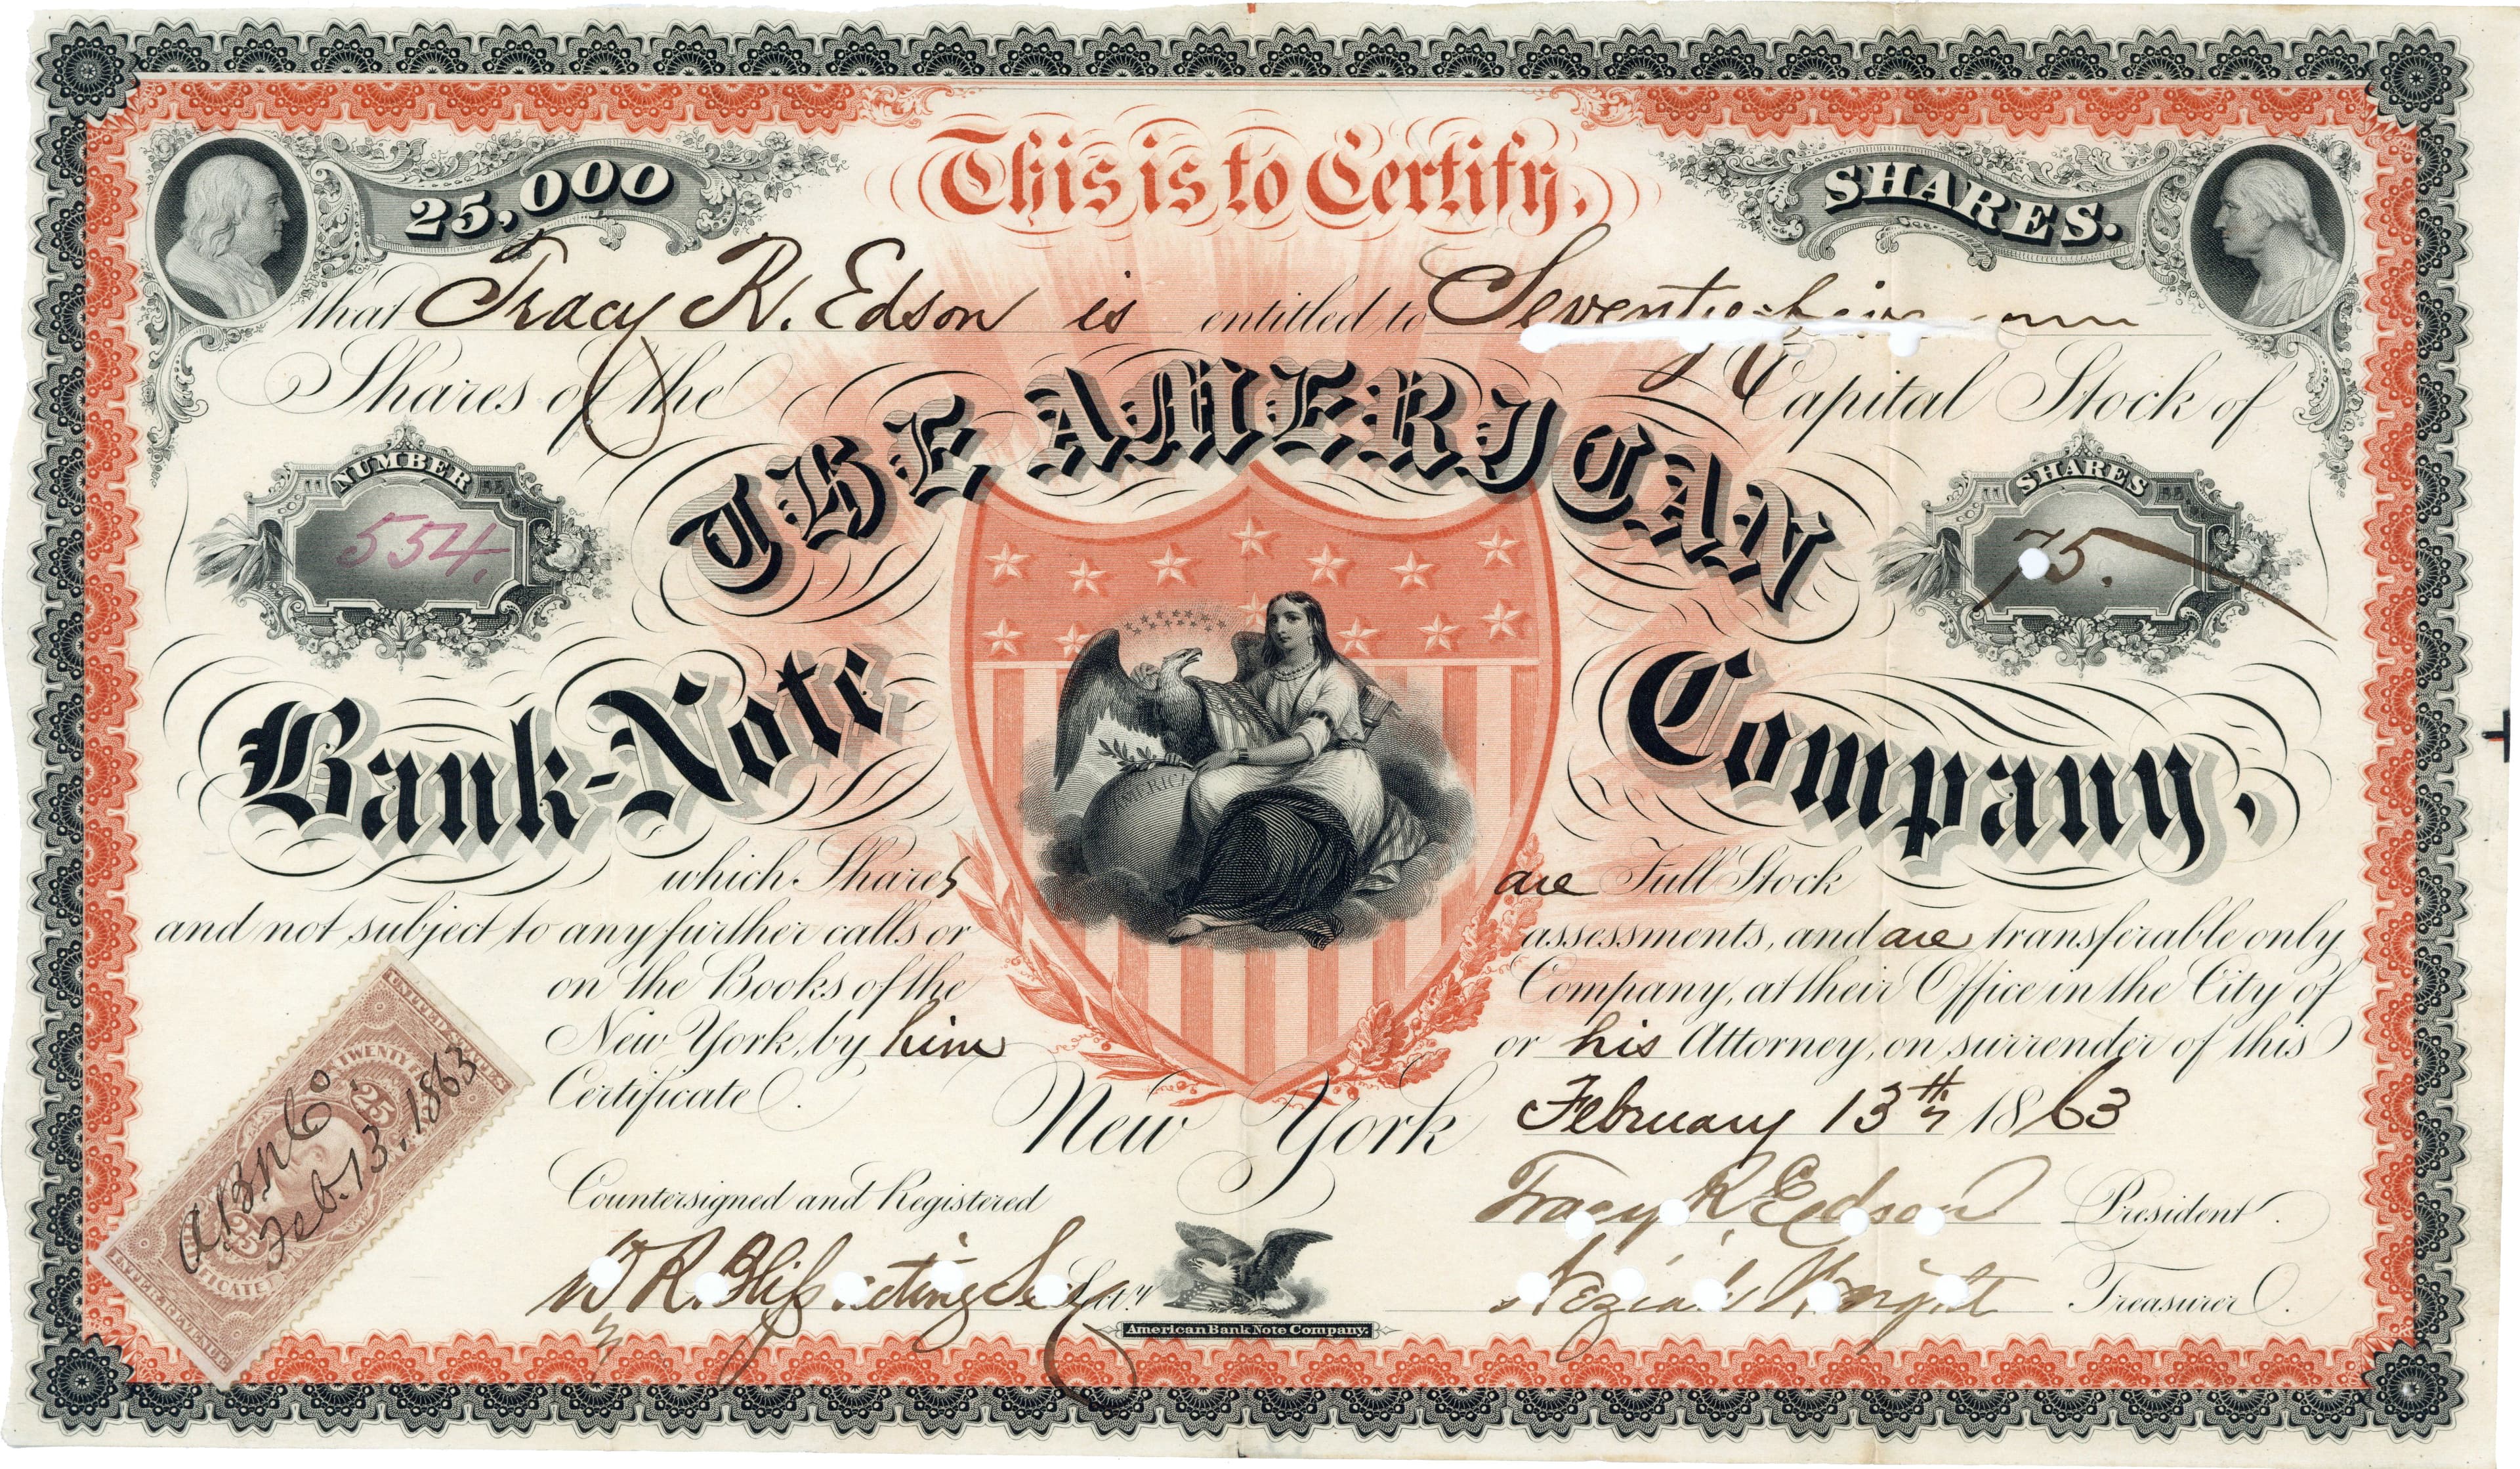 This is to Certify,
25,000
SHARES.
that Tracy R. Edson is entitled to Seventy-five
Shares of the Capital Stock of
THE AMERICAN
NUMBER
554.
SHARES
75.
Bank-Note Company,
AMERICA
which Shares are Full Stock
and not subject to any further calls or assessments, and are transferable only
on the Books of the Company, at their Office in the City of
New York, by him or his Attorney, on surrender of this
Certificate.
New York February 13th 1863
Countersigned and Registered
Tracy R. Edson President.
W R. Bliss acting Sec Sec.y
Neziah Wright Treasurer.
American Bank Note Company.
UNITED STATES
TWENTY FI
25
25
CERTIFICATE
INTER. REVENUE
A B N Co
Feb. 13. 1863